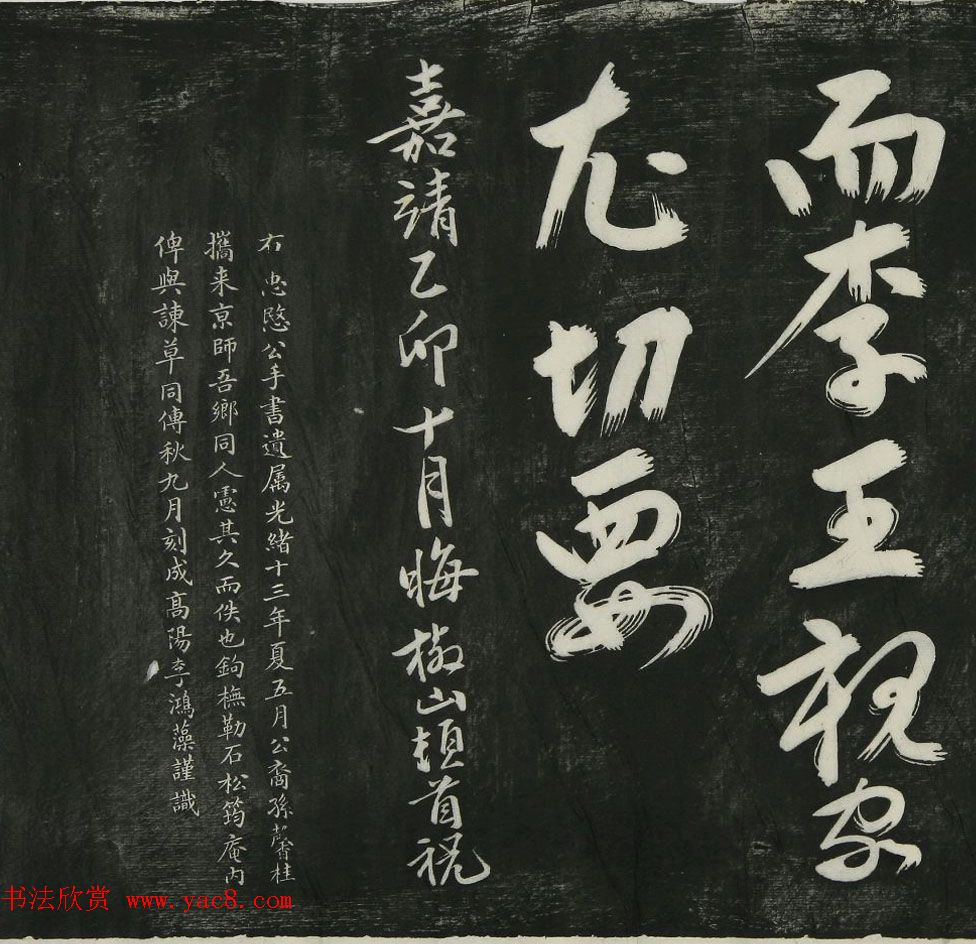 而李王視安
尤切要
嘉靖乙卯十月晦椒山頓首祝
右忠愍公手書遺属光緒十三年夏五月公裔孫馨桂
攜来京師吾鄉同人慮其久而佚也鉤橅勒石松筠庵内
俾與諫草同傳秋九月刻成高陽李鴻藻謹識
书法欣赏 www.yac8.com